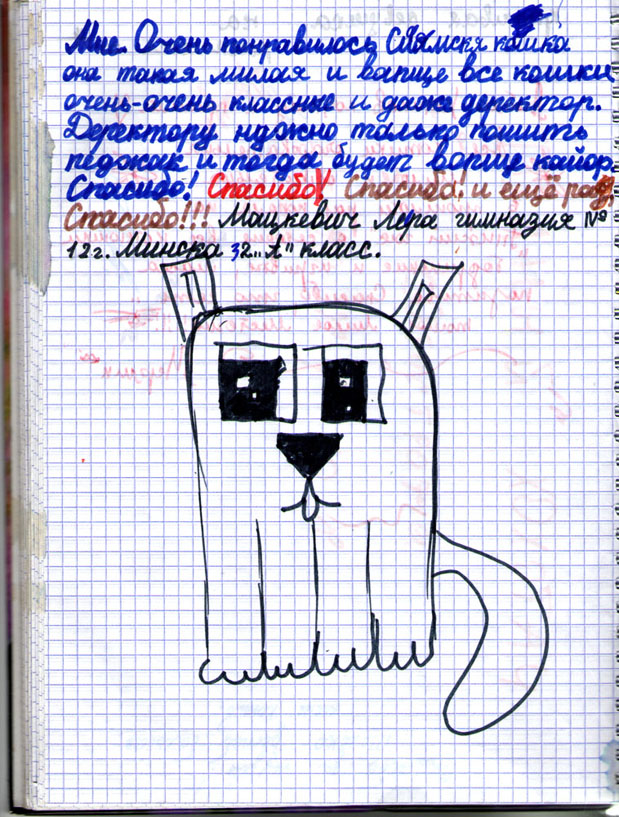 Мне Очень понравилось Сиямскя кошка
она такая милая и ващще все кошки
очень-очень классные и даже деректор.
Деректору нджно только пошить
педжак и тогда будет вопще кайор.
Спасибо! Спасибо! Спасибо! и ещё раз,
Спасибо!!! Мацкевич Лера гимназия №
12 г. Минска 32 "А" класс.